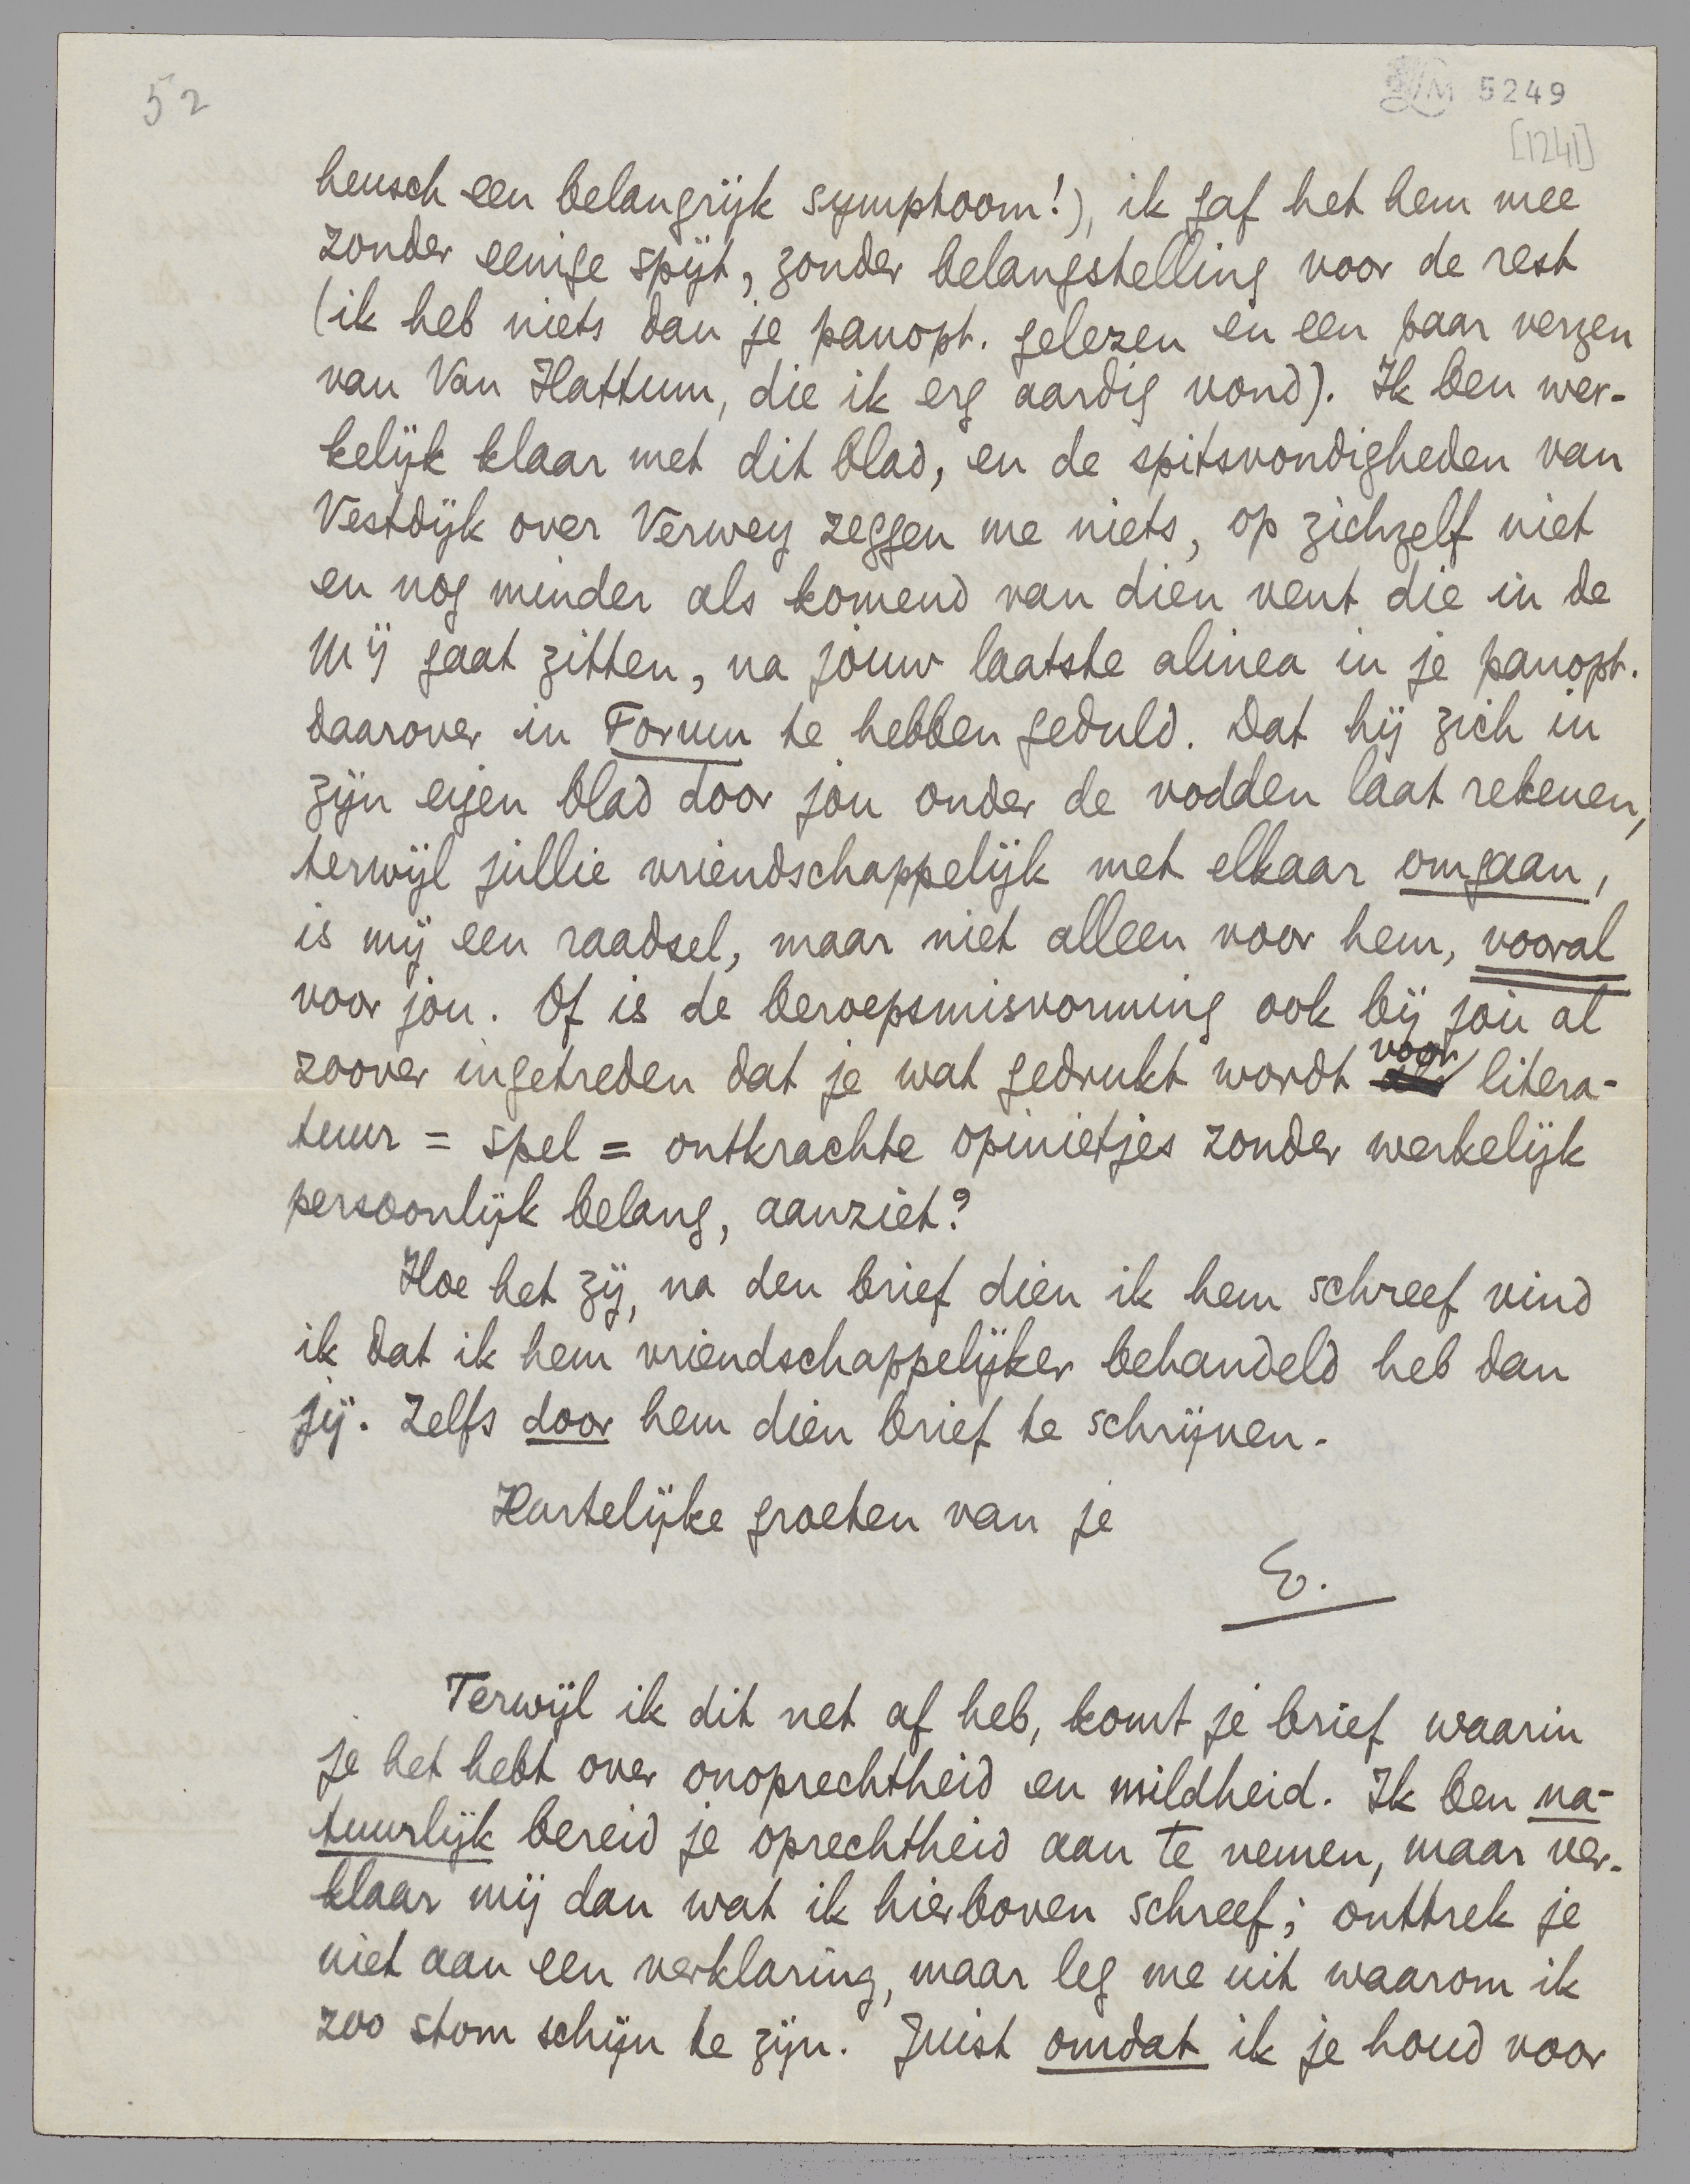 52
LM 5249
[1241]
heusch een belangrijk symptoom!), ik gaf het hem mee
zonder eenige spijt, zonder belangstelling voor de rest
(ik heb niets dan je panopt. gelezen en een paar verzen
van Van Hattum, die ik erg aardig vond). Ik ben wer-
kelijk klaar met dit blad, en de spitsvondigheden van
Vestdijk over Verwey zeggen me niets, op zichzelf niet
en nog minder als komend van dien vent die in de
Mij gaat zitten, na jouw laatste alinea in je panopt.
daarover in Forum te hebben geduld. Dat hij zich in
zijn eigen blad door jou onder de vodden laat rekenen,
terwijl jullie vriendschappelijk met elkaar omgaan,
is mij een raadsel, maar niet alleen voor hem, vooral
voor jou. Of is de beroepsmisvorming ook bij jou al
zoover ingetreden dat je wat gedrukt wordt voor litera-
tuur = spel = ontkrachte opinietjes zonder werkelijk
persoonlijk belang, aanziet?
Hoe het zij, na den brief dien ik hem schreef vind
ik dat ik hem vriendschappelijker behandeld heb dan
jij. Zelfs door hem dien brief te schrijven.
Hartelijke groeten van je
E.
Terwijl ik dit net af heb, komt je brief waarin
je het hebt over onoprechtheid en mildheid. Ik ben na-
tuurlijk bereid je oprechtheid aan te nemen, maar ver-
klaar mij dan wat ik hierboven schreef; onttrek je
niet aan een verklaring, maar leg me uit waarom ik
zoo stom schijn te zijn. Juist omdat ik je houd voor